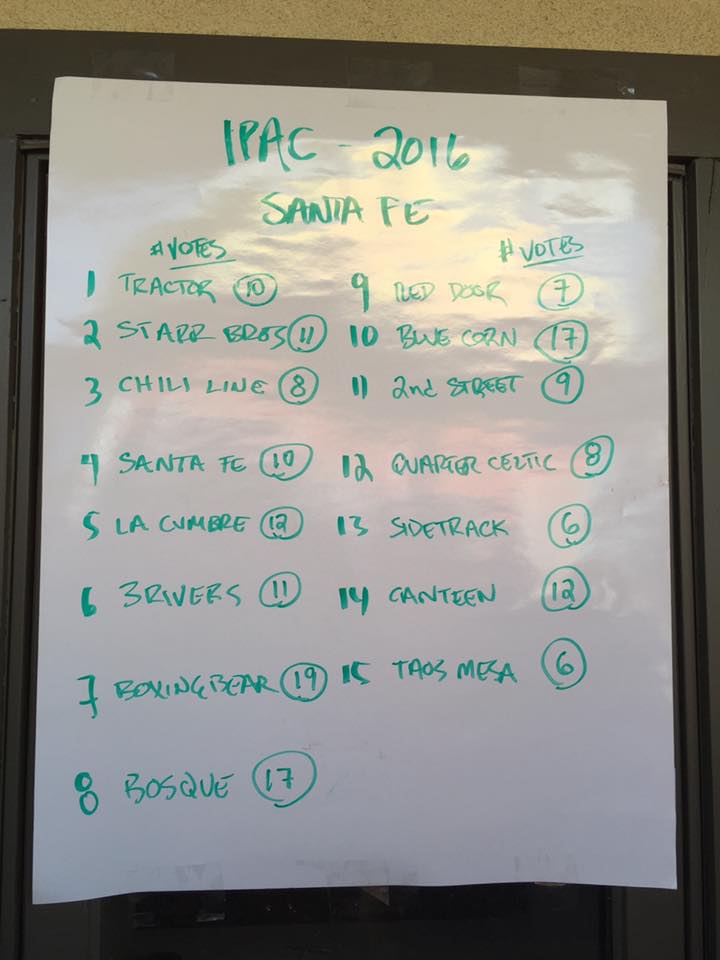 IPAC - 2016
SANTA FE
# VOTES
1 TRACTOR 10
2 STARR BROS 11
3 CHILI LINE 8
4 SANTA FE 10
5 LA CUMBRE 12
6 3RIVERS 11
7 BOXING BEAR 19
8 BOSQUE 17
# VOTES
9 RED DOOR 7
10 BLUE CORN 17
11 2nd STREET 9
12 QUARTER CELTIC 8
13 SIDETRACK 6
14 CANTEEN 12
15 TAOS MESA 6